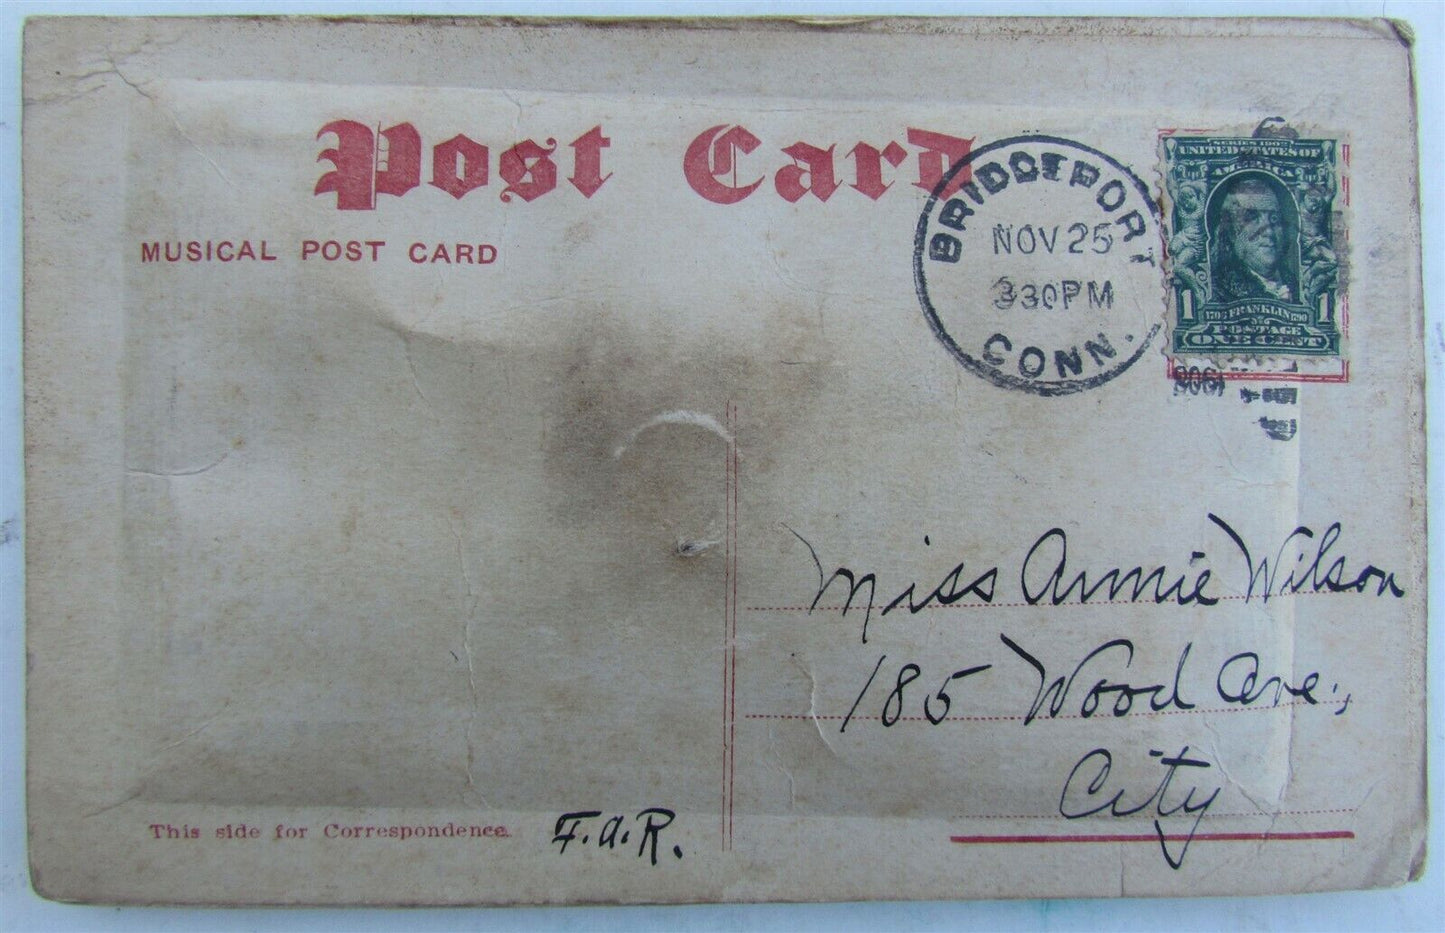 Post Card
MUSICAL POST CARD
BRIDGEPORT
NOV 25
330PM
CONN.
SERIES 1902
UNITED STATES OF
AMERICA
1 1
FRANKLIN
POSTAGE
ONE CENT
Miss Annie Wilson
185 Wood Ave.,
City
This side for Correspondence.
F.a.R.